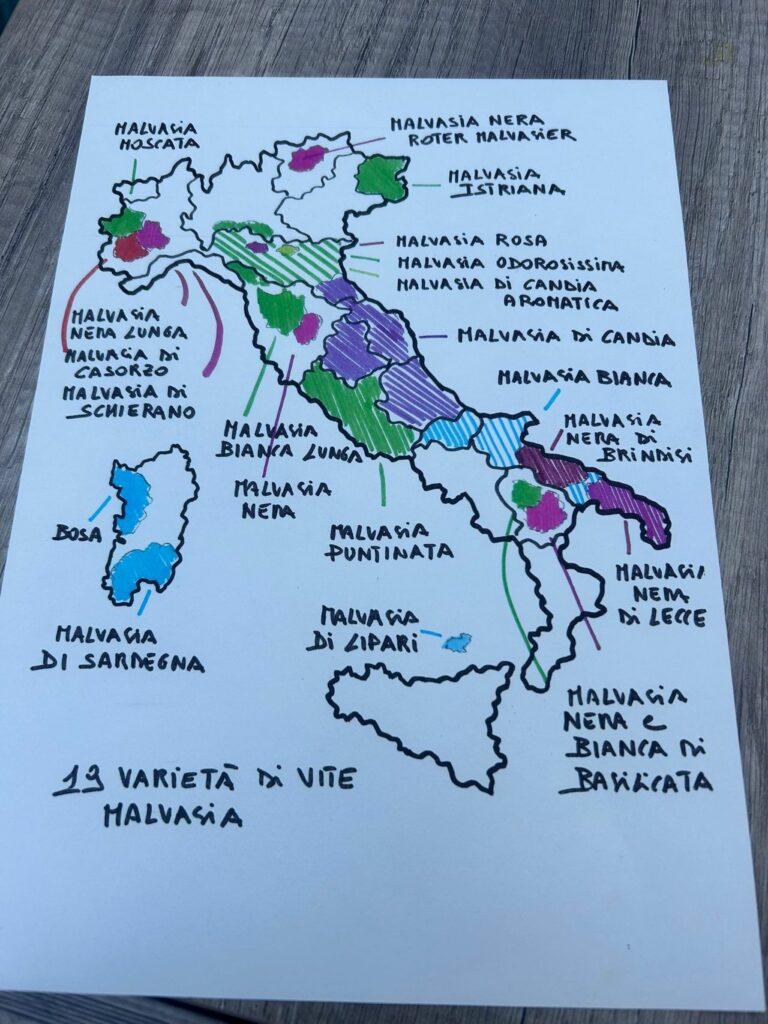 MALVASIA
MOSCATA
MALVASIA NERA
ROTER MALVASIER
MALVASIA
ISTRIANA
MALVASIA ROSA
MALVASIA ODOROSISSIMA
MALVASIA DI CANDIA
AROMATICA
MALVASIA
NERA LUNGA
MALVASIA DI
CASORZO
MALVASIA DI
SCHIERANO
MALVASIA DI CANDIA
MALVASIA BIANCA
MALVASIA
NERA DI
BRINDISI
MALVASIA
BIANCA LUNGA
MALVASIA
NERA
MALVASIA
PUNTINATA
BOSA
MALVASIA
DI SARDEGNA
MALVASIA
DI LIPARI
MALVASIA
NERA
DI LECCE
MALVASIA
NERA e
BIANCA DI
BASILICATA
19 VARIETÀ DI VITE
MALVASIA